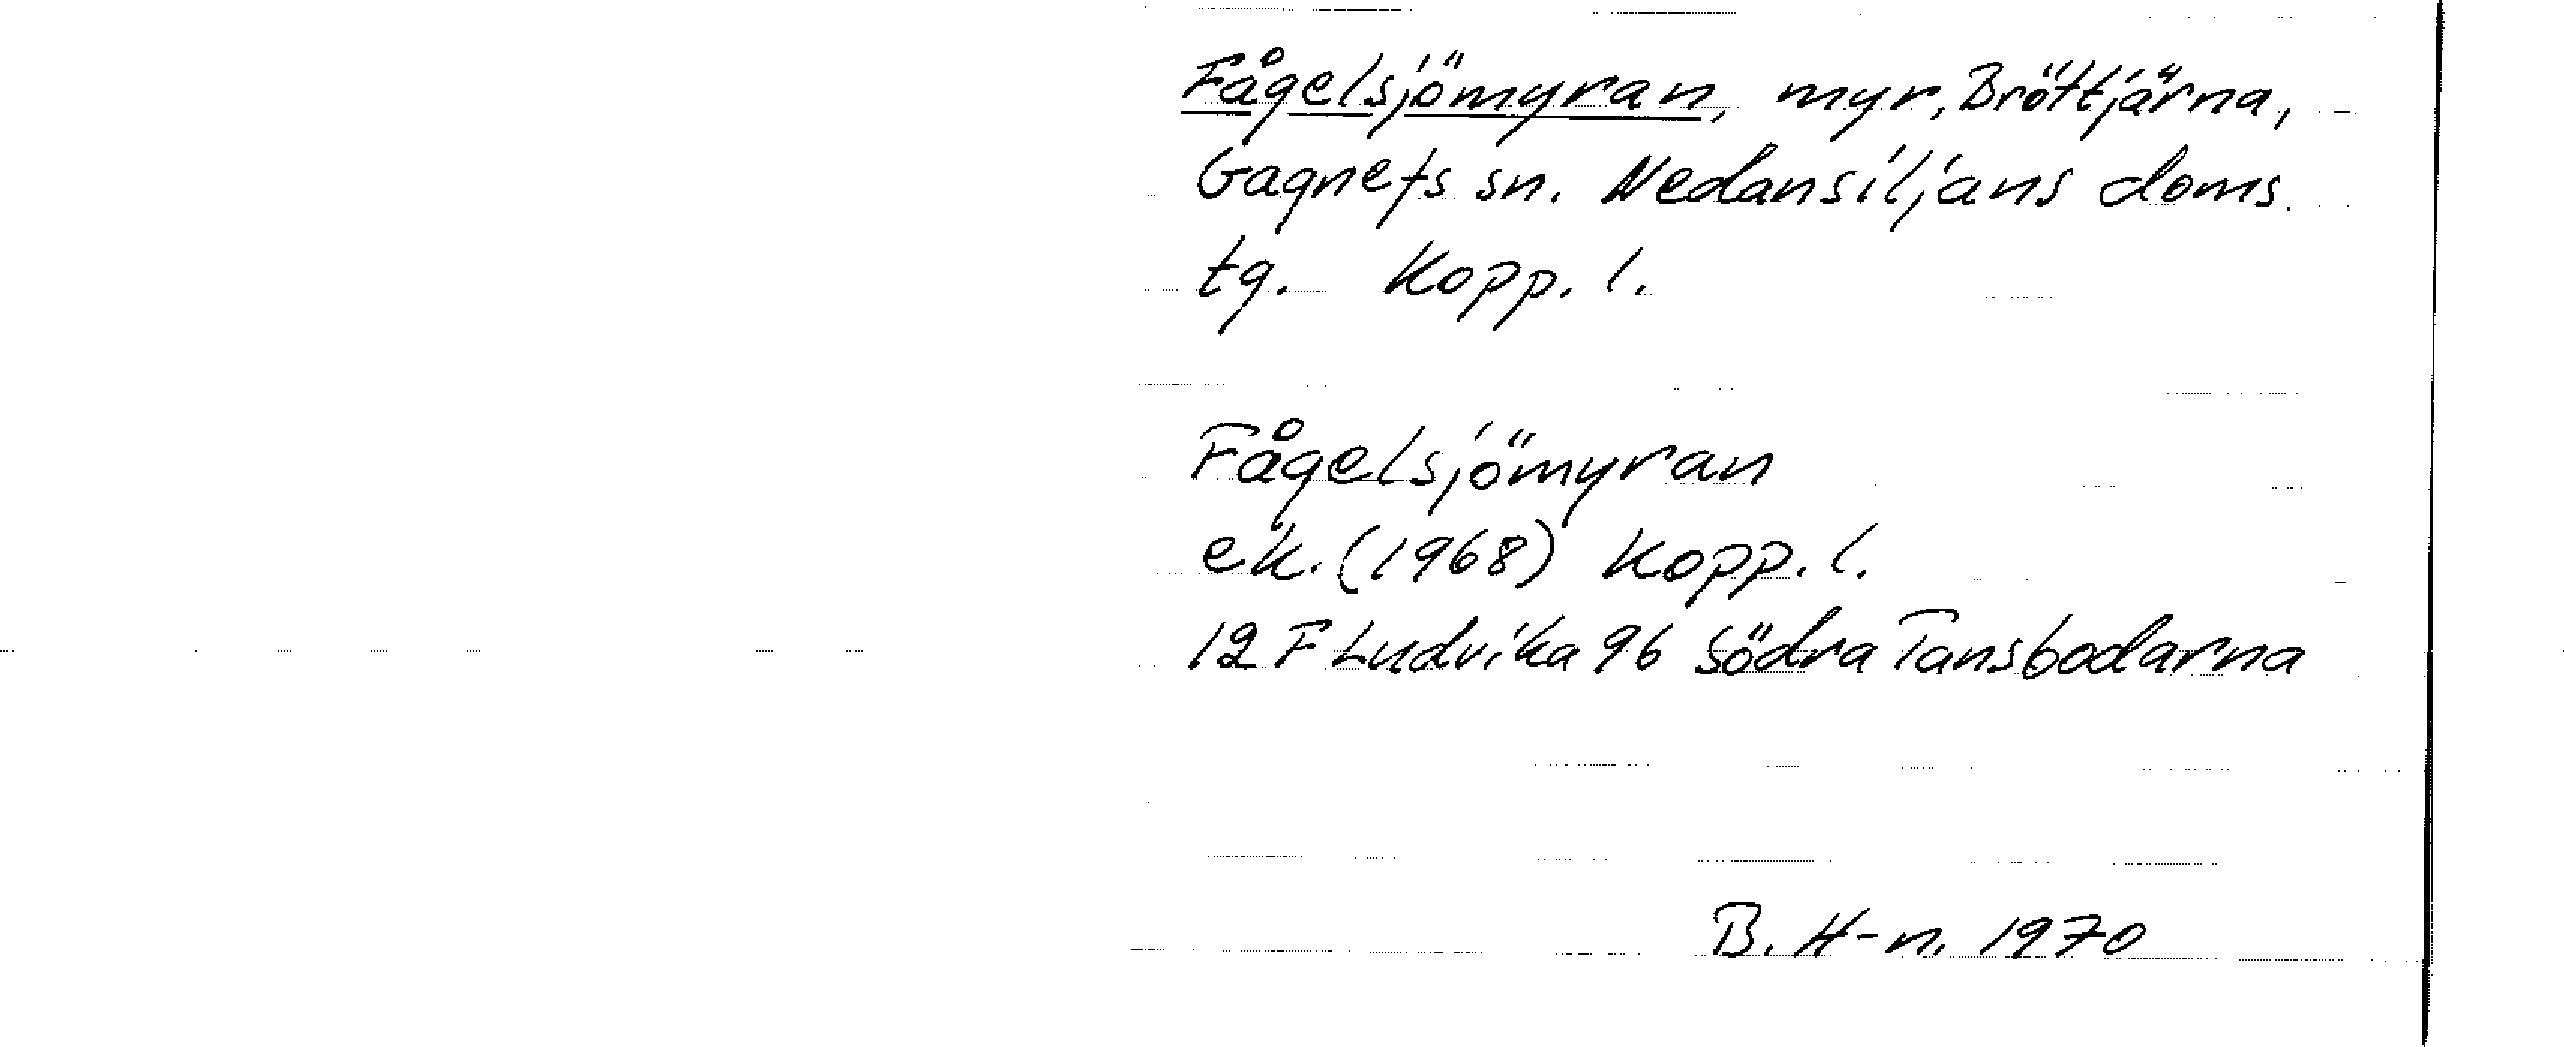 Fågelsjömyran, myr, Bröttjärna,
Gagnefs sn. Nedansiljans doms.
tg. Kopp. l.
Fågelsjömyran
ek. (1968) Kopp. l.
12 F Ludvika 96 Södra Tansbodarna
B. H-n. 1970